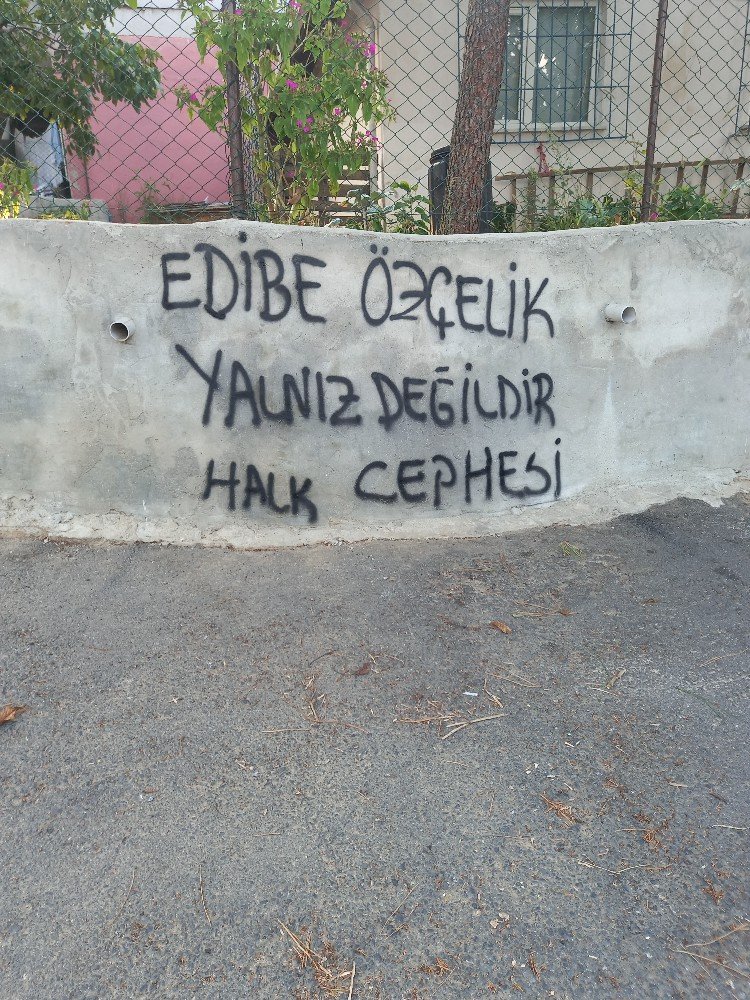 EDİBE ÖZÇELİK
YALNIZ DEĞİLDİR
HALK CEPHESİ